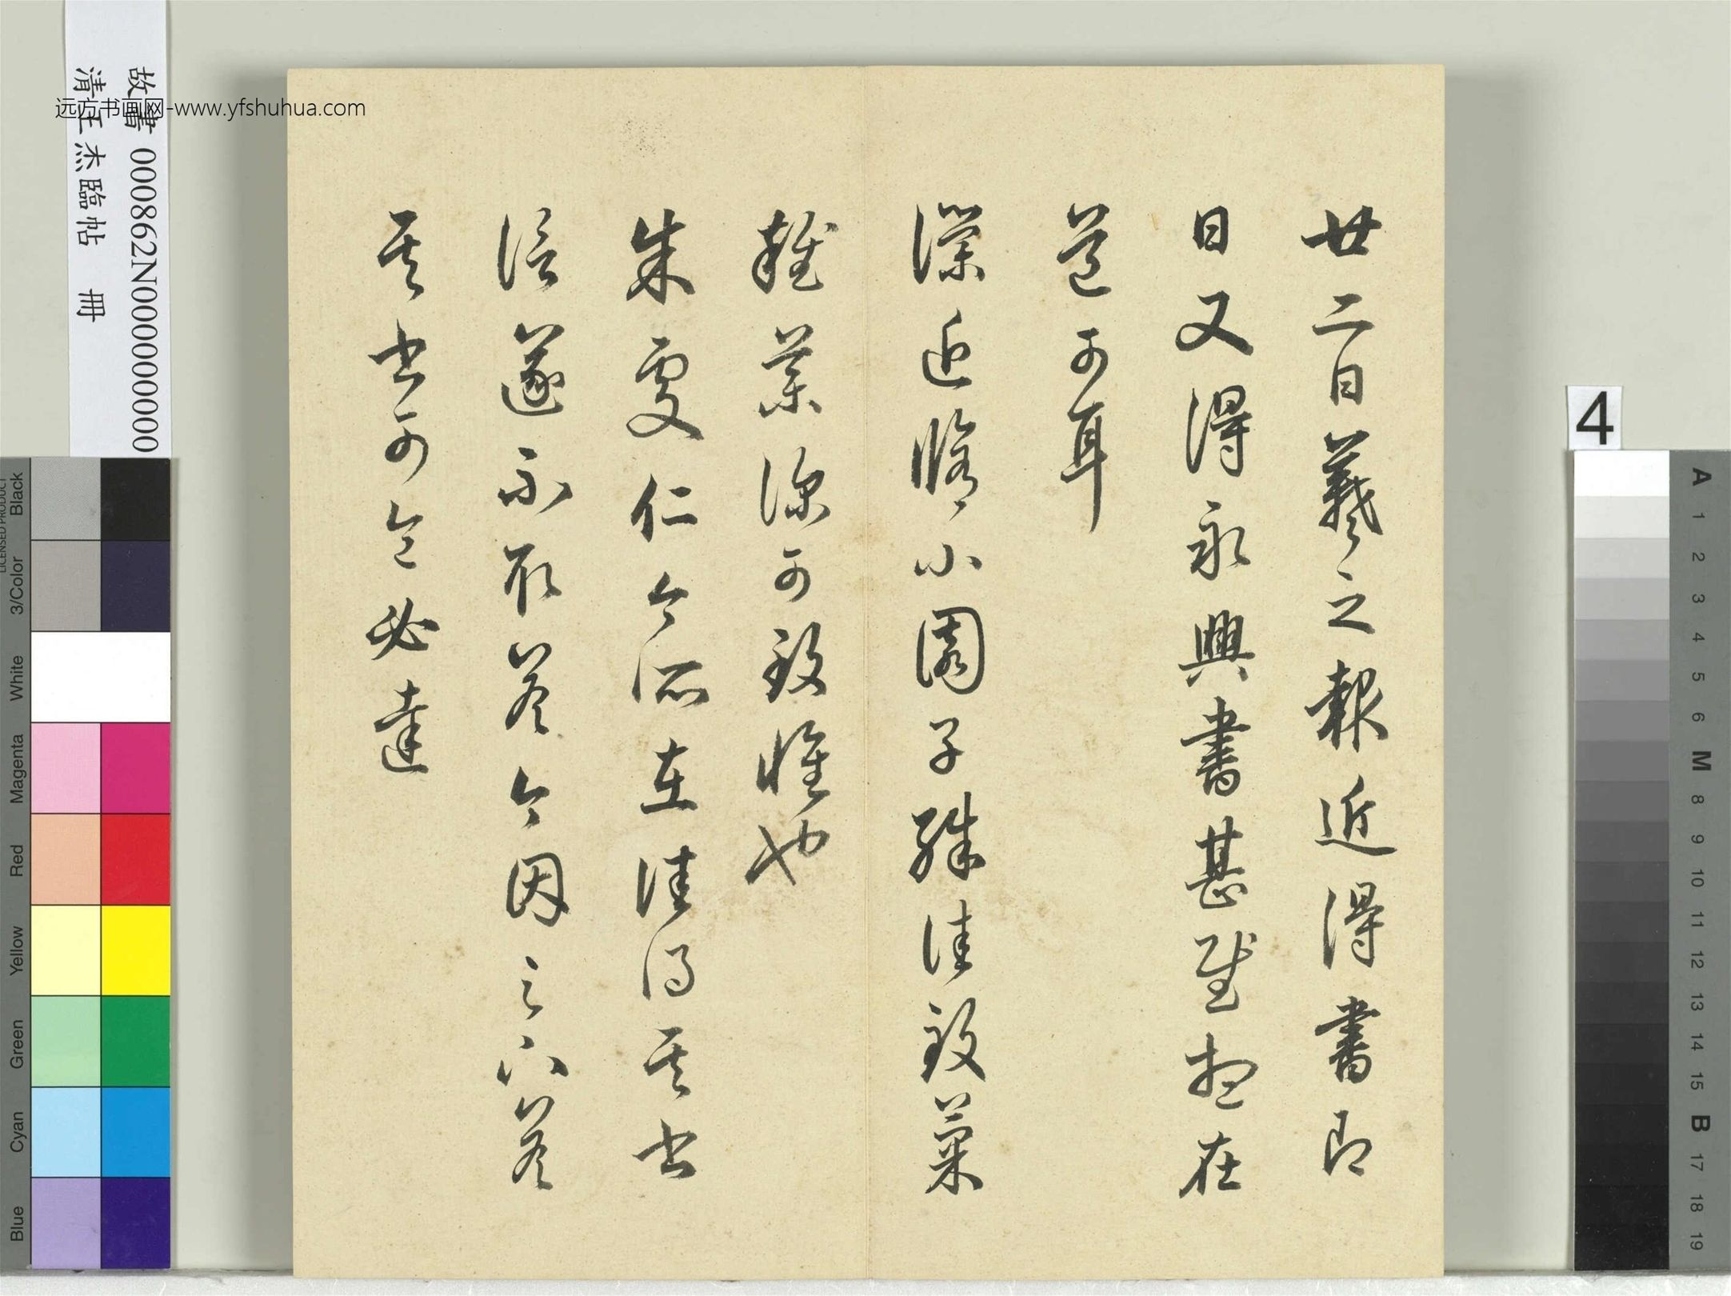 廿二日羲之報近得書即
日又得永興書甚慰想在
道可耳
瀿近修小園子殊佳致菓
雜菓深可致惟也
朱處仁今所在往得其書
信遂不取答今因足下答
其書可令必達
故書 000862N000000000
清王杰臨帖 冊
远方书画网-www.yfshuhua.com
4
LICENSED PRODUCT
Black
3/Color
White
Magenta
Red
Yellow
Green
Cyan
Blue
A
1
2
3
4
5
6
M
8
9
10
11
12
13
14
15
B
17
18
19